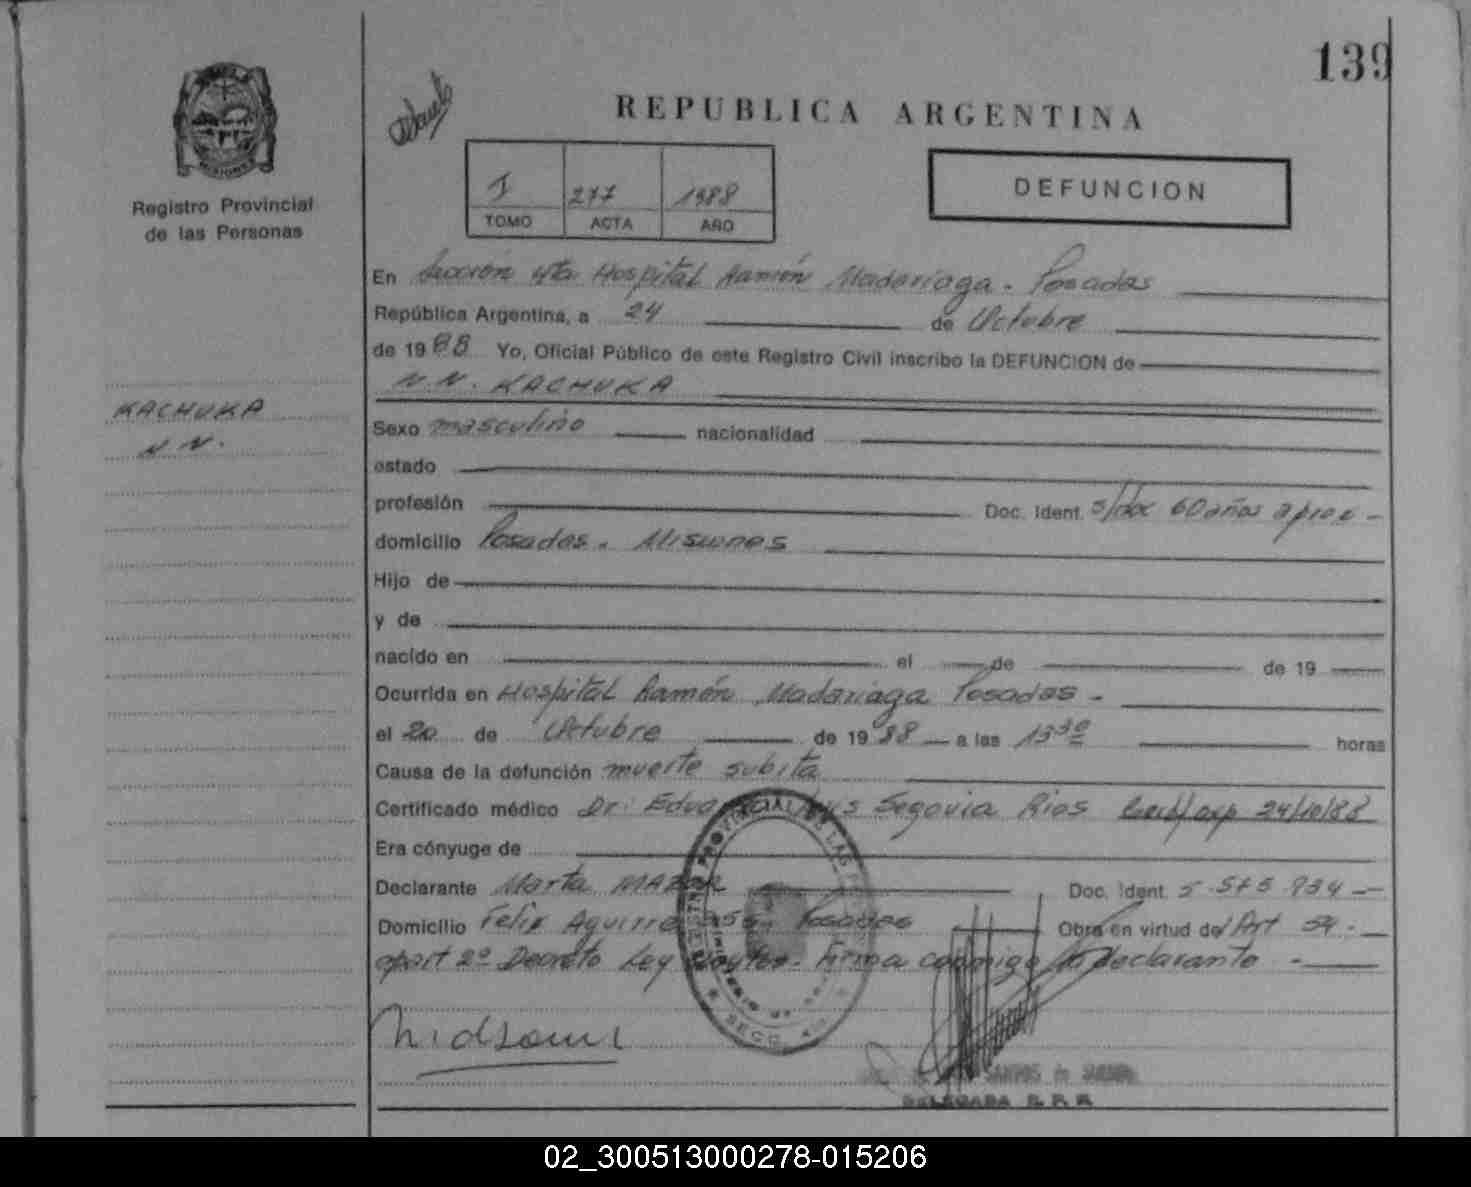 139
REPUBLICA ARGENTINA
MISIONES
Registro Provincial
de las Personas
I 277 1988
TOMO ACTA AÑO
DEFUNCION
En Sección 4ta Hospital Ramón Madariaga - Posadas
República Argentina, a 24 de Octubre
de 1988 Yo, Oficial Público de este Registro Civil inscribo la DEFUNCION de
N.N. KACHUKA
KACHUKA
N.N.
Sexo masculino nacionalidad
estado
profesión Doc. Ident. s/doc 60 años aprox -
domicilio Posadas - Misiones
Hijo de
y de
nacido en el de de 19
Ocurrida en Hospital Ramón Madariaga Posadas -
el 20 de Octubre de 1988 a las 13 30 horas
Causa de la defunción muerte subita
Certificado médico Dr. Segovia Rios 24/10/88
Era cónyuge de
Declarante Marta Doc. Ident. 5.
Domicilio Felix Aguirre Posadas Obra en virtud del Art 59 -
apart 2º Decreto Ley Firma conmigo la declarante -
DELEGADA R. P. P.
02_300513000278-015206